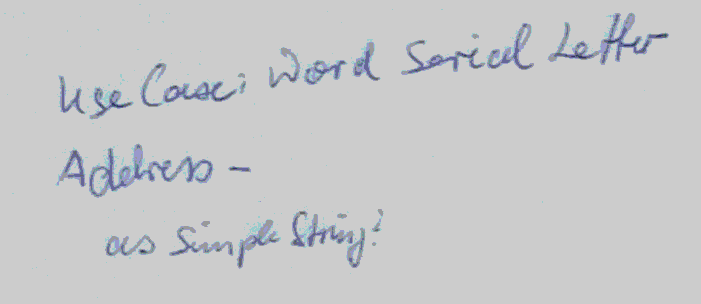 Use Case: Word Serial Letter
Address -
as Simple String?